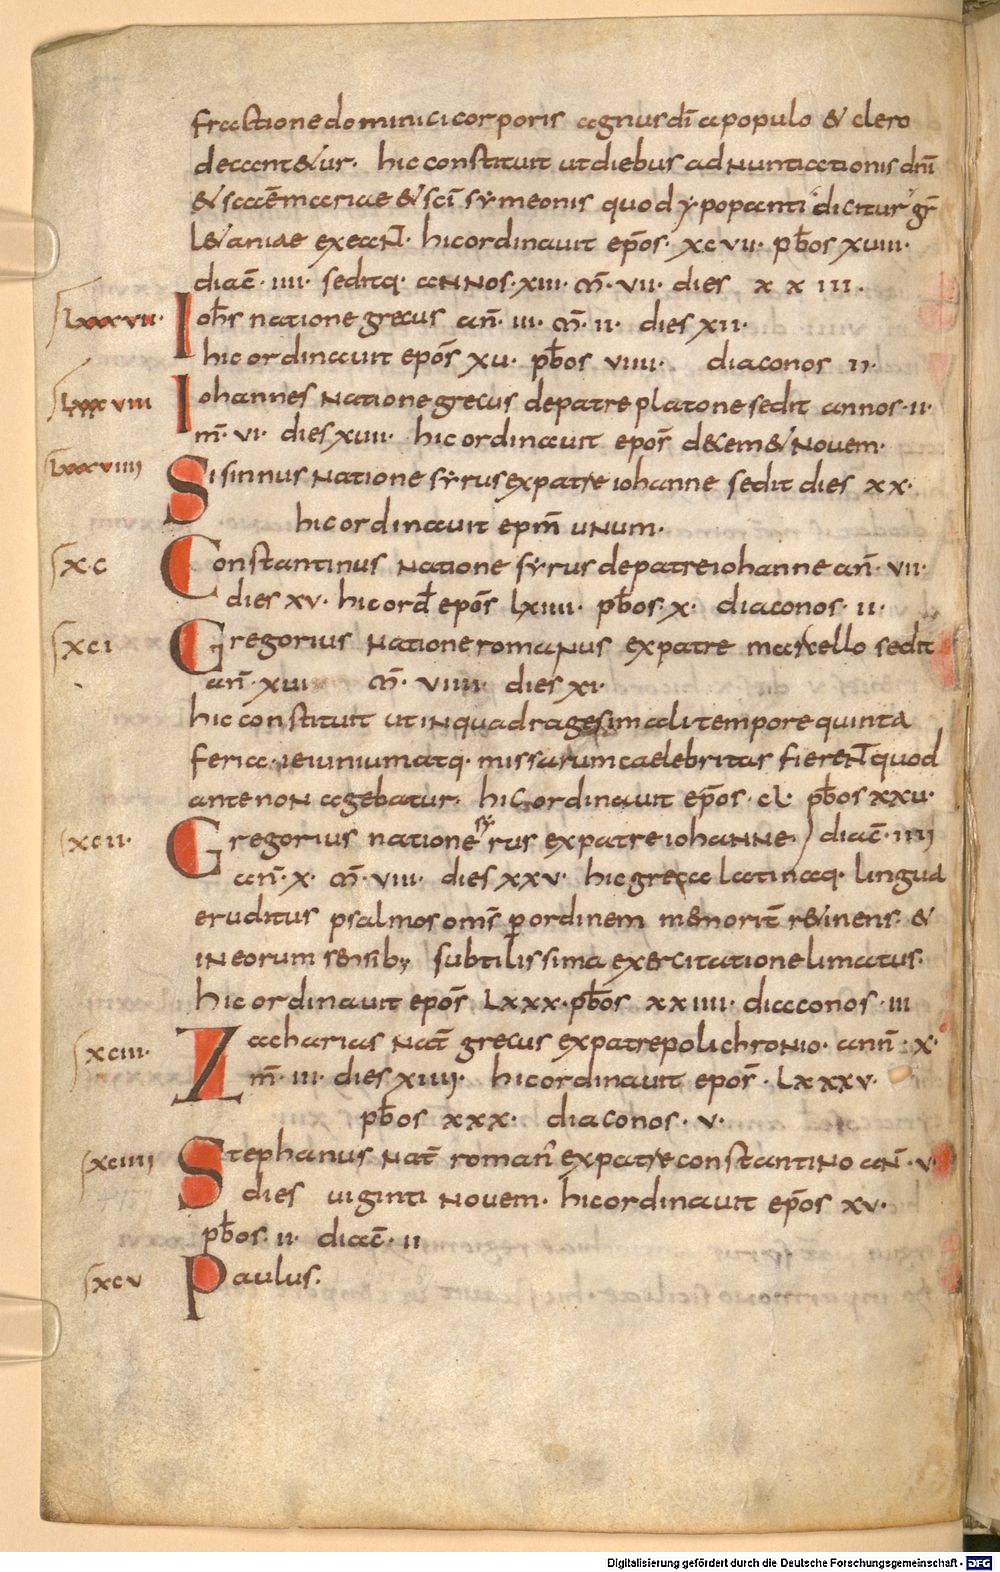 fractione dominici corporis agnus dī a populo & clero
decant&ur· hic constituit ut diebus adnuntiationis dn̄i
& scāē mariae & scī symeonis quod ypopanti dicitur gr̄
l&aniae exeant· hic ordinavit ep̄os· xcvii· pb̄os xviii·
diac̄· iiii· seditq· annos· xiii· m̄· vii· dies x x iii·
lxxxvii· Ioh̄s natione grecus an̄· iii· m̄· ii· dies xii·
hic ordinavit ep̄os xv· pb̄os viiii· diaconos ii·
lxxxviii Iohannes natione grecus de patre platone sedit annos· ii·
m̄· vi· dies xvii· hic ordinavit epos̄ decem & novem·
lxxxviiii Sisinnus natione syrus ex patre iohanne sedit dies xx·
hic ordinavit epm̄ unum·
xc Constantinus natione syrus de patre iohanne an̄· vii·
dies xv· hic ord̄ epos̄ lxiiii· pb̄os· x· diaconos· ii·
xci Gregorius natione romanus ex patre marcello sedit
an̄· xiii m̄· viiii· dies xi·
hic constituit ut in quadragesimali tempore quinta
feria· ieiunium atq· missarum caelebritas fierent quod
ante non agebatur· hic ordinavit ep̄os· cl· pb̄os xxv·
xcii· Gregorius natione syrus ex patre iohanne diac̄· iiii
an̄· x· m̄· viii· dies xxv· hic greca latinaq· lingua
eruditus psalmos om̄s p ordinem memorit̄ r&inens· &
in eorum sensib; subtilissima exercitatione limatus·
hic ordinavit epos̄ lxxx· pb̄os xxiiii· diaconos· iii
xciii· Zacharias nat̄ grecus ex patre polichronio· ann̄· x·
m̄· iii· dies xiiii· hic ordinavit epos̄· lxxxv·
pb̄os xxx· diaconos· v·
xciiii Stephanus nat̄ roman̄ ex patre constantino an̄· v·
dies viginti novem· hic ordinavit ep̄os xv·
pb̄os· ii· diac̄· ii
xcv Paulus·
Digitalisierung gefördert durch die Deutsche Forschungsgemeinschaft - DFG